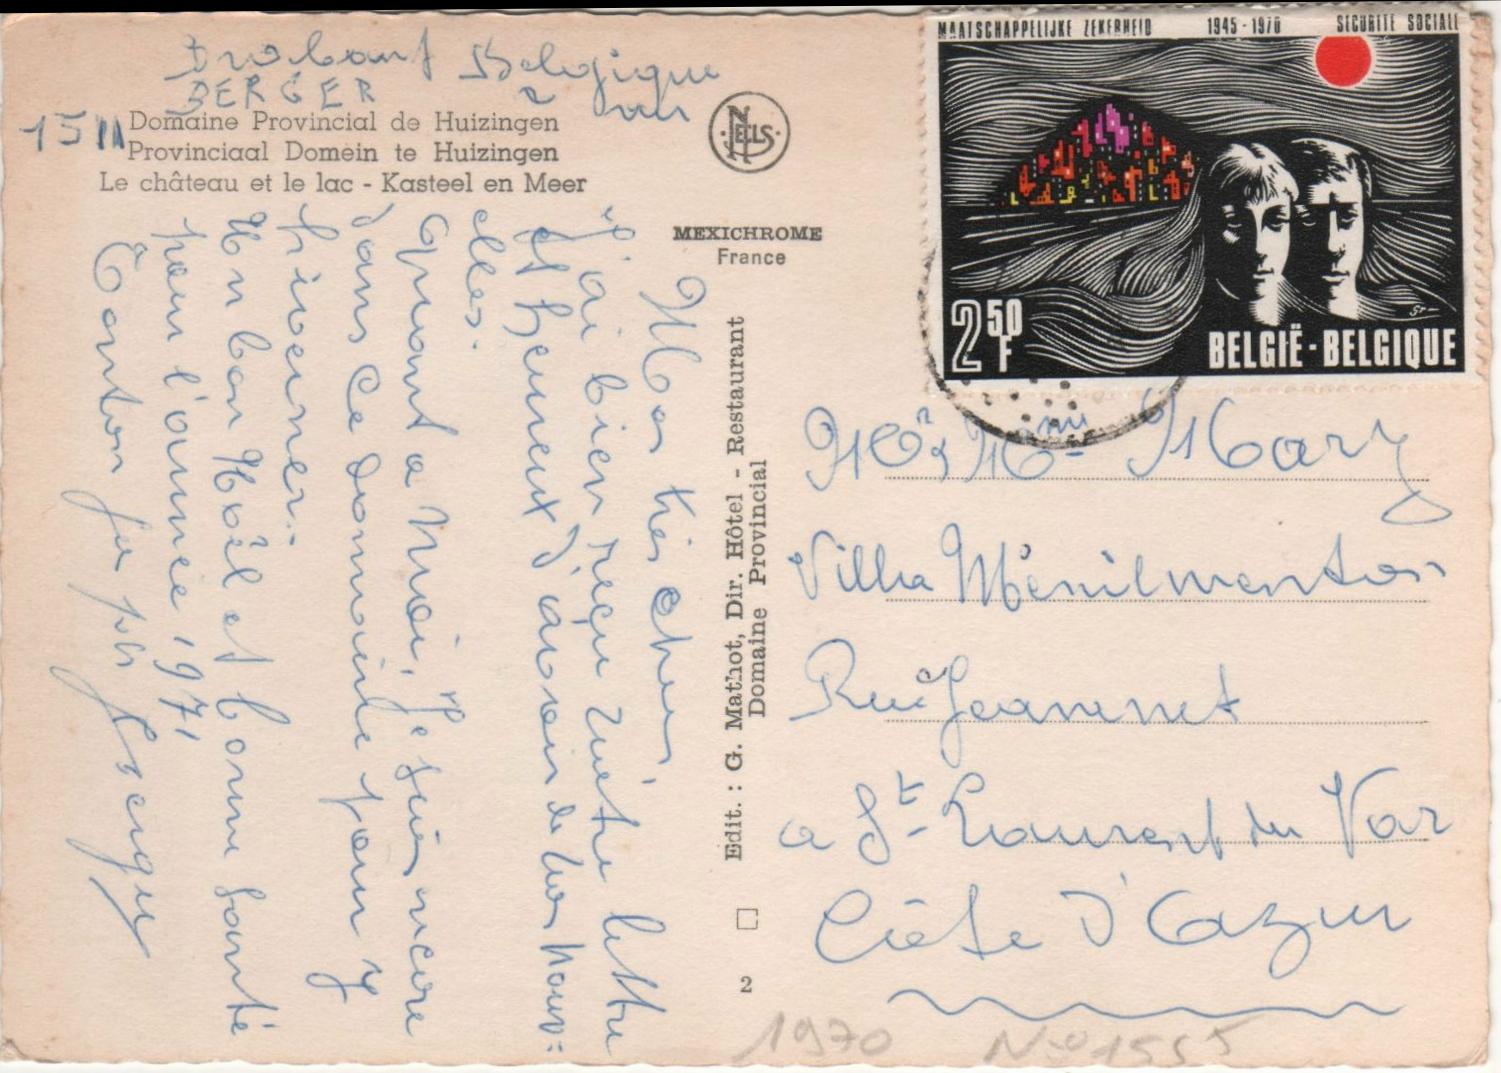 Brabant Belgique
BERGER
15
Domaine Provincial de Huizingen
Provinciaal Domein te Huizingen
Le château et le lac - Kasteel en Meer
NELS
MEXICHROME
France
Mes très cher,
J'ai bien reçu votre lettre
et heureux d'avoir de vos nouv=
elles.
Quant a Moi, Je suis encore
dans ce Domaine pour y
hiverner..
Un bon Noël et bonne santé
pour l'année 1971
Tonton
Edit. : G. Mathot, Dir. Hôtel - Restaurant
Domaine Provincial
2
MAATSCHAPPELIJKE ZEKERHEID 1945-1970 SECURITE SOCIALE
2 50 F
BELGIË-BELGIQUE
Mr & Mme Mary
Villa Ménilmontan
Rue Jeannet
a St Laurent du Var
Côte D'Azur
1970 No 1555